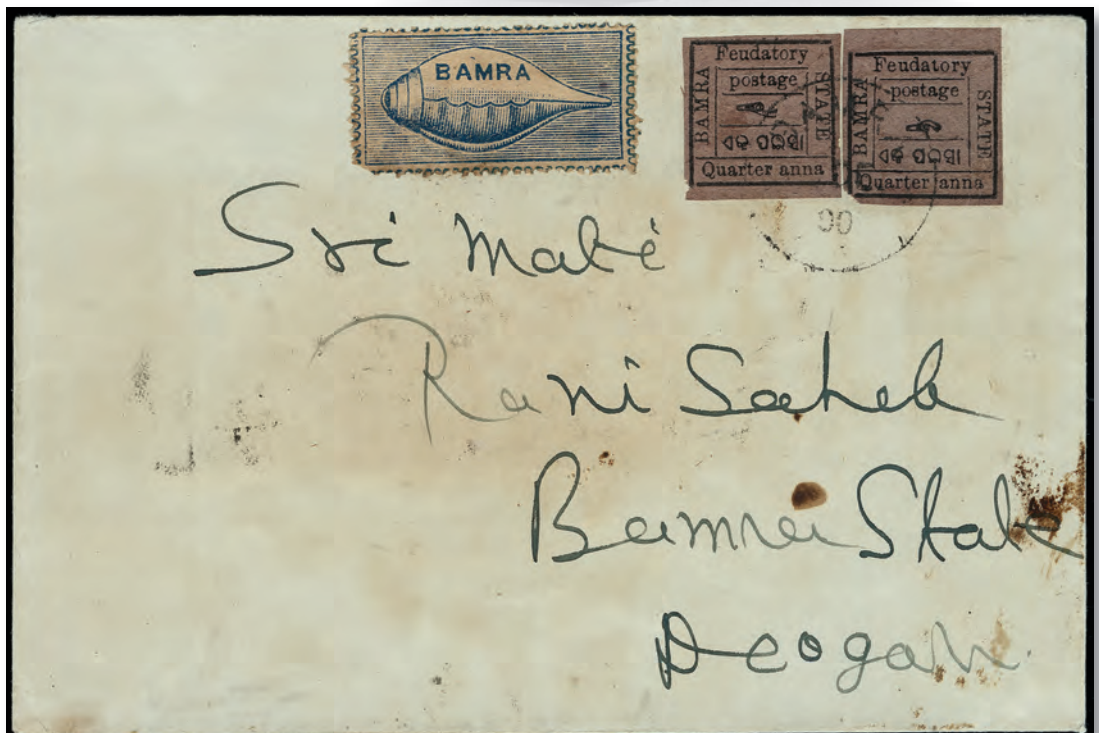 BAMRA
Feudatory
postage
BAMRA
STATE
ଏକ ପଇସା
Quarter anna
Feudatory
postage
BAMRA
STATE
ଏକ ପଇସା
Quarter anna
90
Sri Mati
Rani Saheb
Bamra State
Deogarh